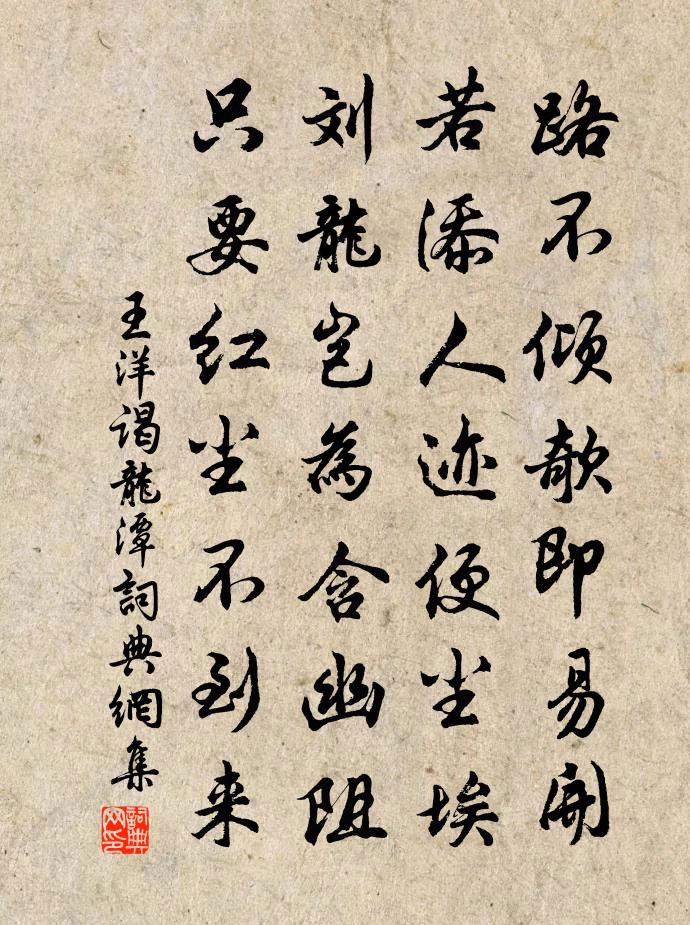 路不倾欹即易开
若添人迹便尘埃
刘龍岂為含幽阻
只要红尘不到来
王洋谒龍潭詞典網集
詞典网印